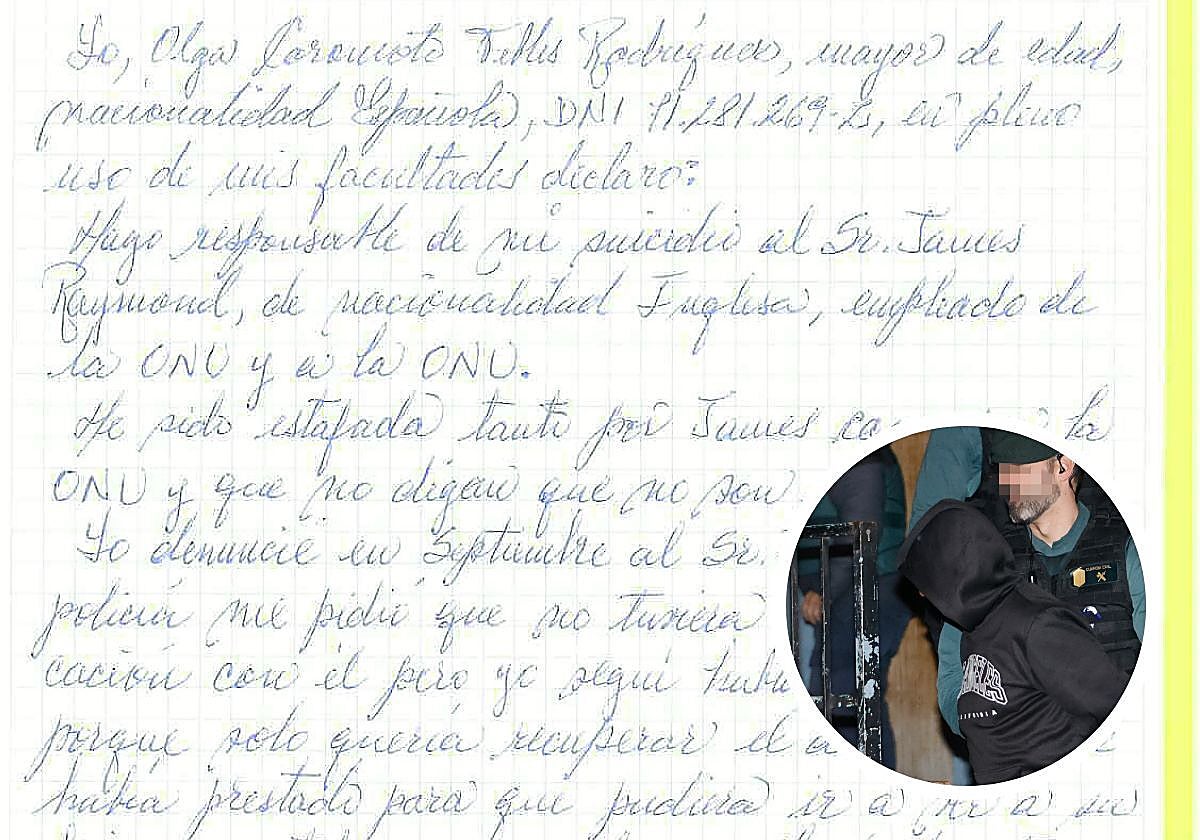 Yo, Olga Coromoto Rodríguez, mayor de edad,
nacionalidad Española, DNI en pleno
uso de mis facultades declaro:
Hago responsable de mi suicidio al Sr. James
Raymond, de nacionalidad Inglesa, empleado de
la ONU y a la ONU.
He sido estafada tanto por James la
ONU y que no digan que no son
Yo denuncié en Septiembre al Sr.
policía me pidió que no tuviera
cación con él pero yo seguí
porque solo quería recuperar el
había prestado para que pudiera ir a ver a su
GUARDIA CIVIL